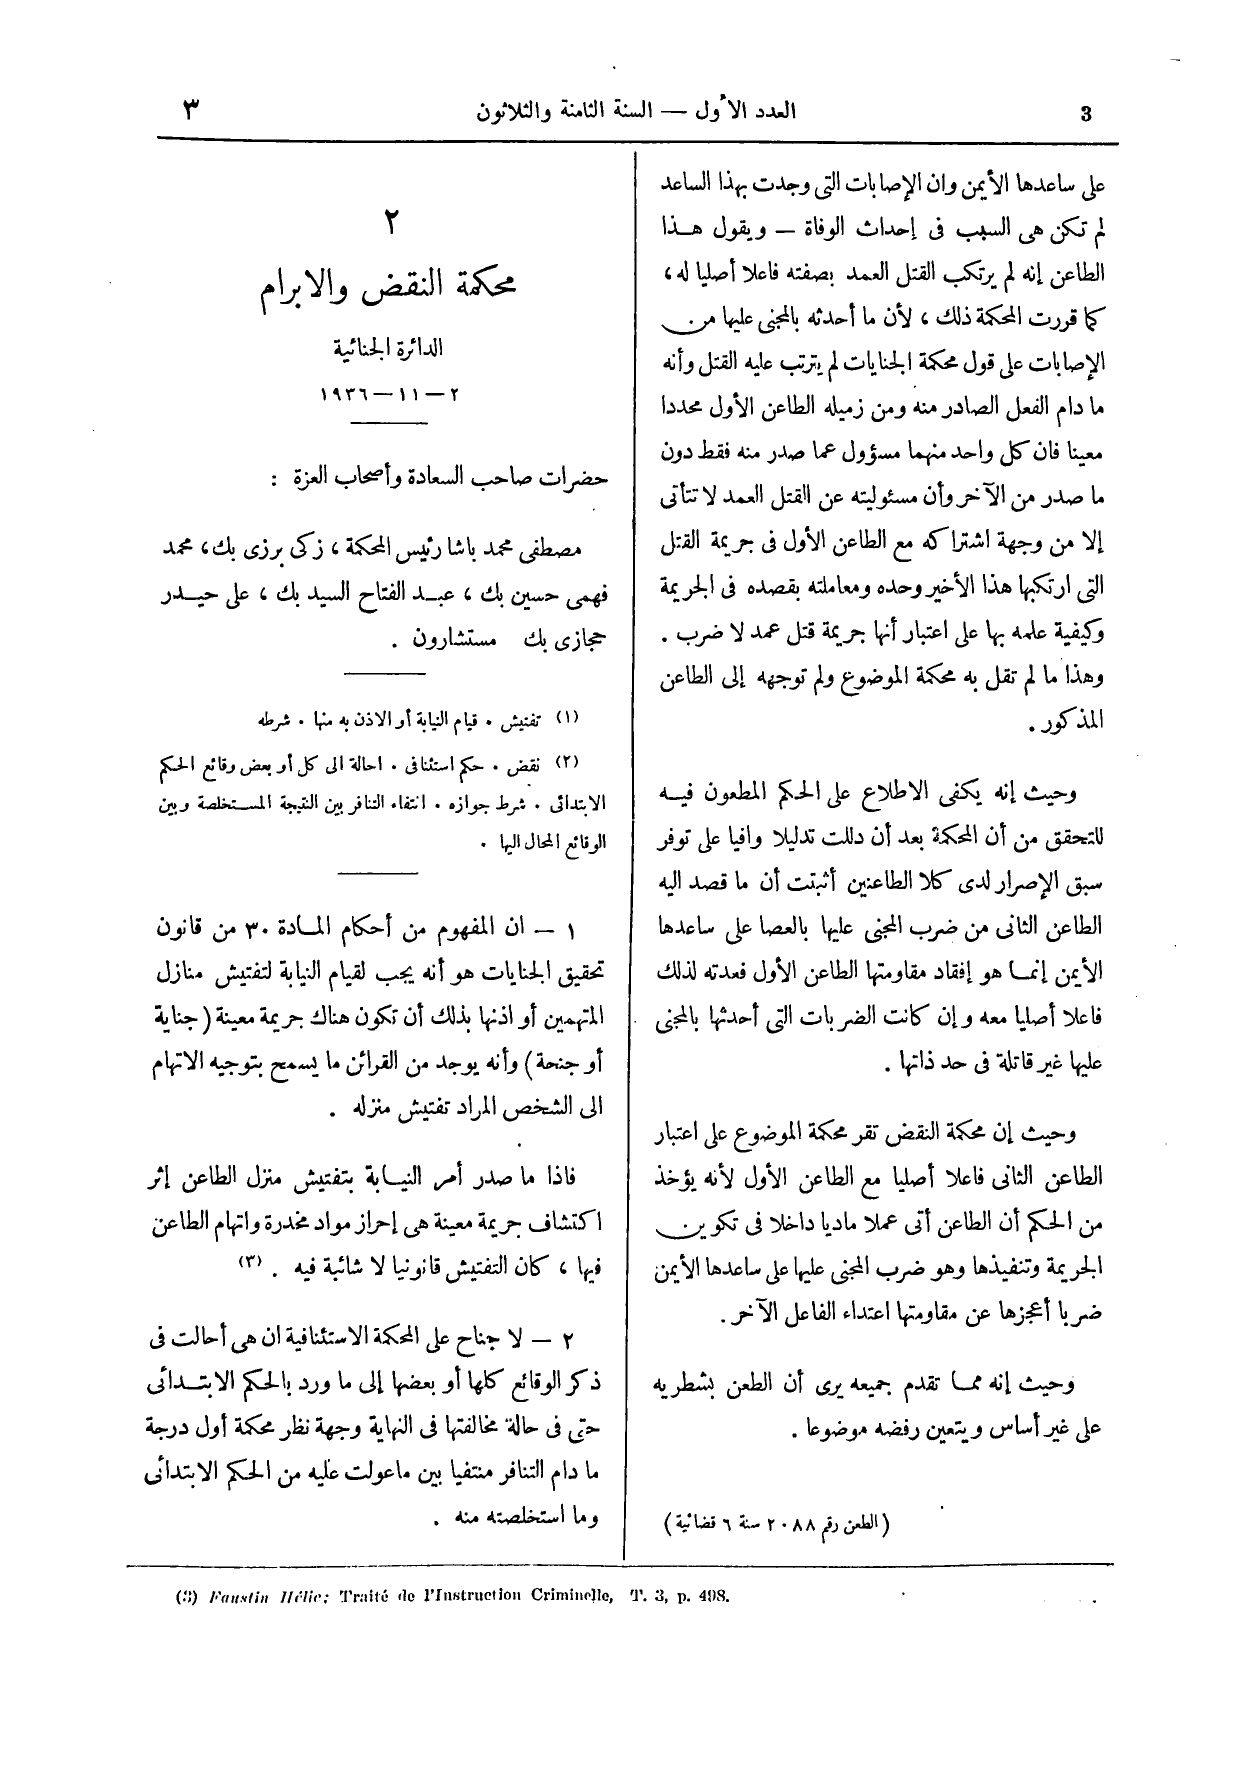 3 العدد الأول — السنة الثامنة والثلاثون ٣
على ساعدها الأيمن وان الإصابات التى وجدت بهذا الساعد
لم تكن هى السبب فى إحداث الوفاة — ويقول هذا
الطاعن إنه لم يرتكب القتل العمد بصفته فاعلا أصليا له ،
كما قررت المحكمة ذلك ، لأن ما أحدثه بالمجنى عليها من
الإصابات على قول محكمة الجنايات لم يترتب عليه القتل وأنه
ما دام الفعل الصادر منه ومن زميله الطاعن الأول محددا
معينا فان كل واحد منهما مسؤول عما صدر منه فقط دون
ما صدر من الآخر وأن مسئوليته عن القتل العمد لا تتأتى
إلا من وجهة اشتراكه مع الطاعن الأول فى جريمة القتل
التى ارتكبها هذا الأخير وحده ومعاملته بقصده فى الجريمة
وكيفية علمه بها على اعتبار أنها جريمة قتل عمد لا ضرب .
وهذا ما لم تقل به محكمة الموضوع ولم توجهه إلى الطاعن
المذكور .
وحيث إنه يكفى الاطلاع على الحكم المطعون فيه
للتحقق من أن المحكمة بعد أن دللت تدليلا وافيا على توفر
سبق الإصرار لدى كلا الطاعنين أثبتت أن ما قصد اليه
الطاعن الثانى من ضرب المجنى عليها بالعصا على ساعدها
الأيمن إنما هو إفقاد مقاومتها الطاعن الأول فعدته لذلك
فاعلا أصليا معه وإن كانت الضربات التى أحدثها بالمجنى
عليها غير قاتلة فى حد ذاتها .
وحيث إن محكمة النقض تقر محكمة الموضوع على اعتبار
الطاعن الثانى فاعلا أصليا مع الطاعن الأول لأنه يؤخذ
من الحكم أن الطاعن أتى عملا ماديا داخلا فى تكوين
الجريمة وتنفيذها وهو ضرب المجنى عليها على ساعدها الأيمن
ضربا أعجزها عن مقاومتها اعتداء الفاعل الآخر .
وحيث إنه مما تقدم جميعه يرى أن الطعن بشطريه
على غير أساس ويتعين رفضه موضوعا .
(الطعن رقم ٢٠٨٨ سنة ٦ قضائية)
٢
محكمة النقض والابرام
الدائرة الجنائية
٢ — ١١ — ١٩٣٦
حضرات صاحب السعادة وأصحاب العزة :
مصطفى محمد باشا رئيس المحكمة ، زكى برزى بك ، محمد
فهمى حسين بك ، عبد الفتاح السيد بك ، على حيدر
حجازى بك مستشارون .
(١) تفتيش . قيام النيابة أو الاذن به منها . شرطه
(٢) نقض . حكم استئنافى . احالة الى كل أو بعض وقائع الحكم
الابتدائى . شرط جوازه . انتفاء التنافر بين النتيجة المستخلصة وبين
الوقائع المحال اليها .
١ — ان المفهوم من أحكام المادة ٣٠ من قانون
تحقيق الجنايات هو أنه يجب لقيام النيابة لتفتيش منازل
المتهمين أو اذنها بذلك أن تكون هناك جريمة معينة (جناية
أو جنحة) وأنه يوجد من القرائن ما يسمح بتوجيه الاتهام
الى الشخص المراد تفتيش منزله .
فاذا ما صدر أمر النيابة بتفتيش منزل الطاعن إثر
اكتشاف جريمة معينة هى إحراز مواد مخدرة واتهام الطاعن
فيها ، كان التفتيش قانونيا لا شائبة فيه . (٣)
٢ — لا جناح على المحكمة الاستئنافية ان هى أحالت فى
ذكر الوقائع كلها أو بعضها إلى ما ورد بالحكم الابتدائى
حتى فى حالة مخالفتها فى النهاية وجهة نظر محكمة أول درجة
ما دام التنافر منتفيا بين ماعولت عليه من الحكم الابتدائى
وما استخلصته منه .
(3) Faustin Hélie: Traité de l'Instruction Criminelle, T. 3, p. 498.